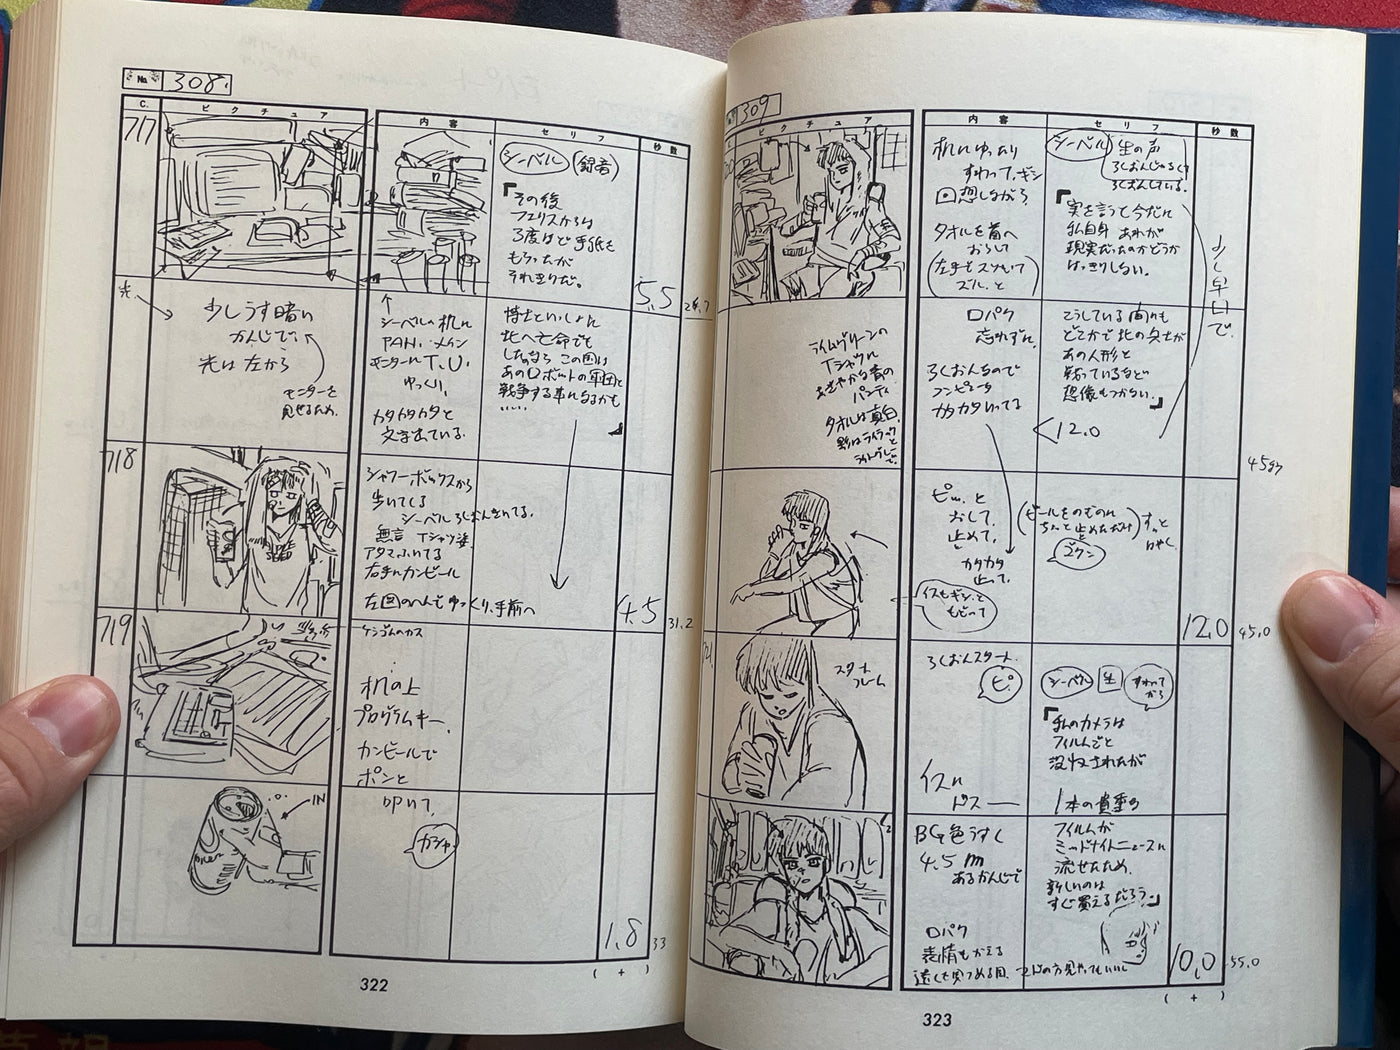 No. 308.
C. ピクチュア 内容 セリフ 秒数
717
シーベル (録音)
「その後
フェリスからは
3度ほど手紙を
もらったが
それきりだ。
5.5
光
少しうす暗い
かんじで。
光は左から
モニターを
見せるため。
シーベルの机に
PAN. メイン
モニターにT.U.
ゆっくり。
カタカタカタと
文字出ている。
博士といっしょに
北へ亡命でも
したのなら この国は
あのロボットの軍団と
戦争する事になるかも
……」
718
シャワーボックスから
歩いてくる
シーベル ろくおんきいてる。
無言 Tシャツ姿
アタマふいてる
右手にカンビール
4.5
31.2
719
ケシゴムのカス
机の上
プログラムキー
カンビールで
ポンと
叩いて
カシャ
IN
1.8
33
( + )
322
309
ピクチュア 内容 セリフ 秒数
机にゆったり
すわって、ギシ
回想しながら
タオルを首へ
おろして
シーベル 生の声
ろくおんしている。
「実を言うと今だに
私自身 あれが
現実だったのかどうか
はっきりしない。
少し早口で。
口パク
忘れずに
ろくおんなので
コンピュータ
カタカタいってる
こうしている間にも
どこかで北の兵士が
あの人形と
戦っているなど
想像もつかない。」
12.0
ライムグリーンの
Tシャツに
あざやかな青の
パンティ
タオルは真白
影はライラックと
ピッ、と
おして、
止めて、
カタカタ
止って、
イスもギシ、と
もどって
ゴクン
12.0
45.0
スタート
フレーム
ろくおんスタート。
ピ。
シーベル 生 すわって
から
「私のカメラは
フィルムごと
没収されたが
1本の貴重な
イスに
ドスー
BG色うすく
4.5m
あるかんじで
フィルムが
ミッドナイトニュースに
流せたため、
新しいのは
すぐ買えるだろう。」
口パク
表情もかえる
10.0
55.0
( + )
323